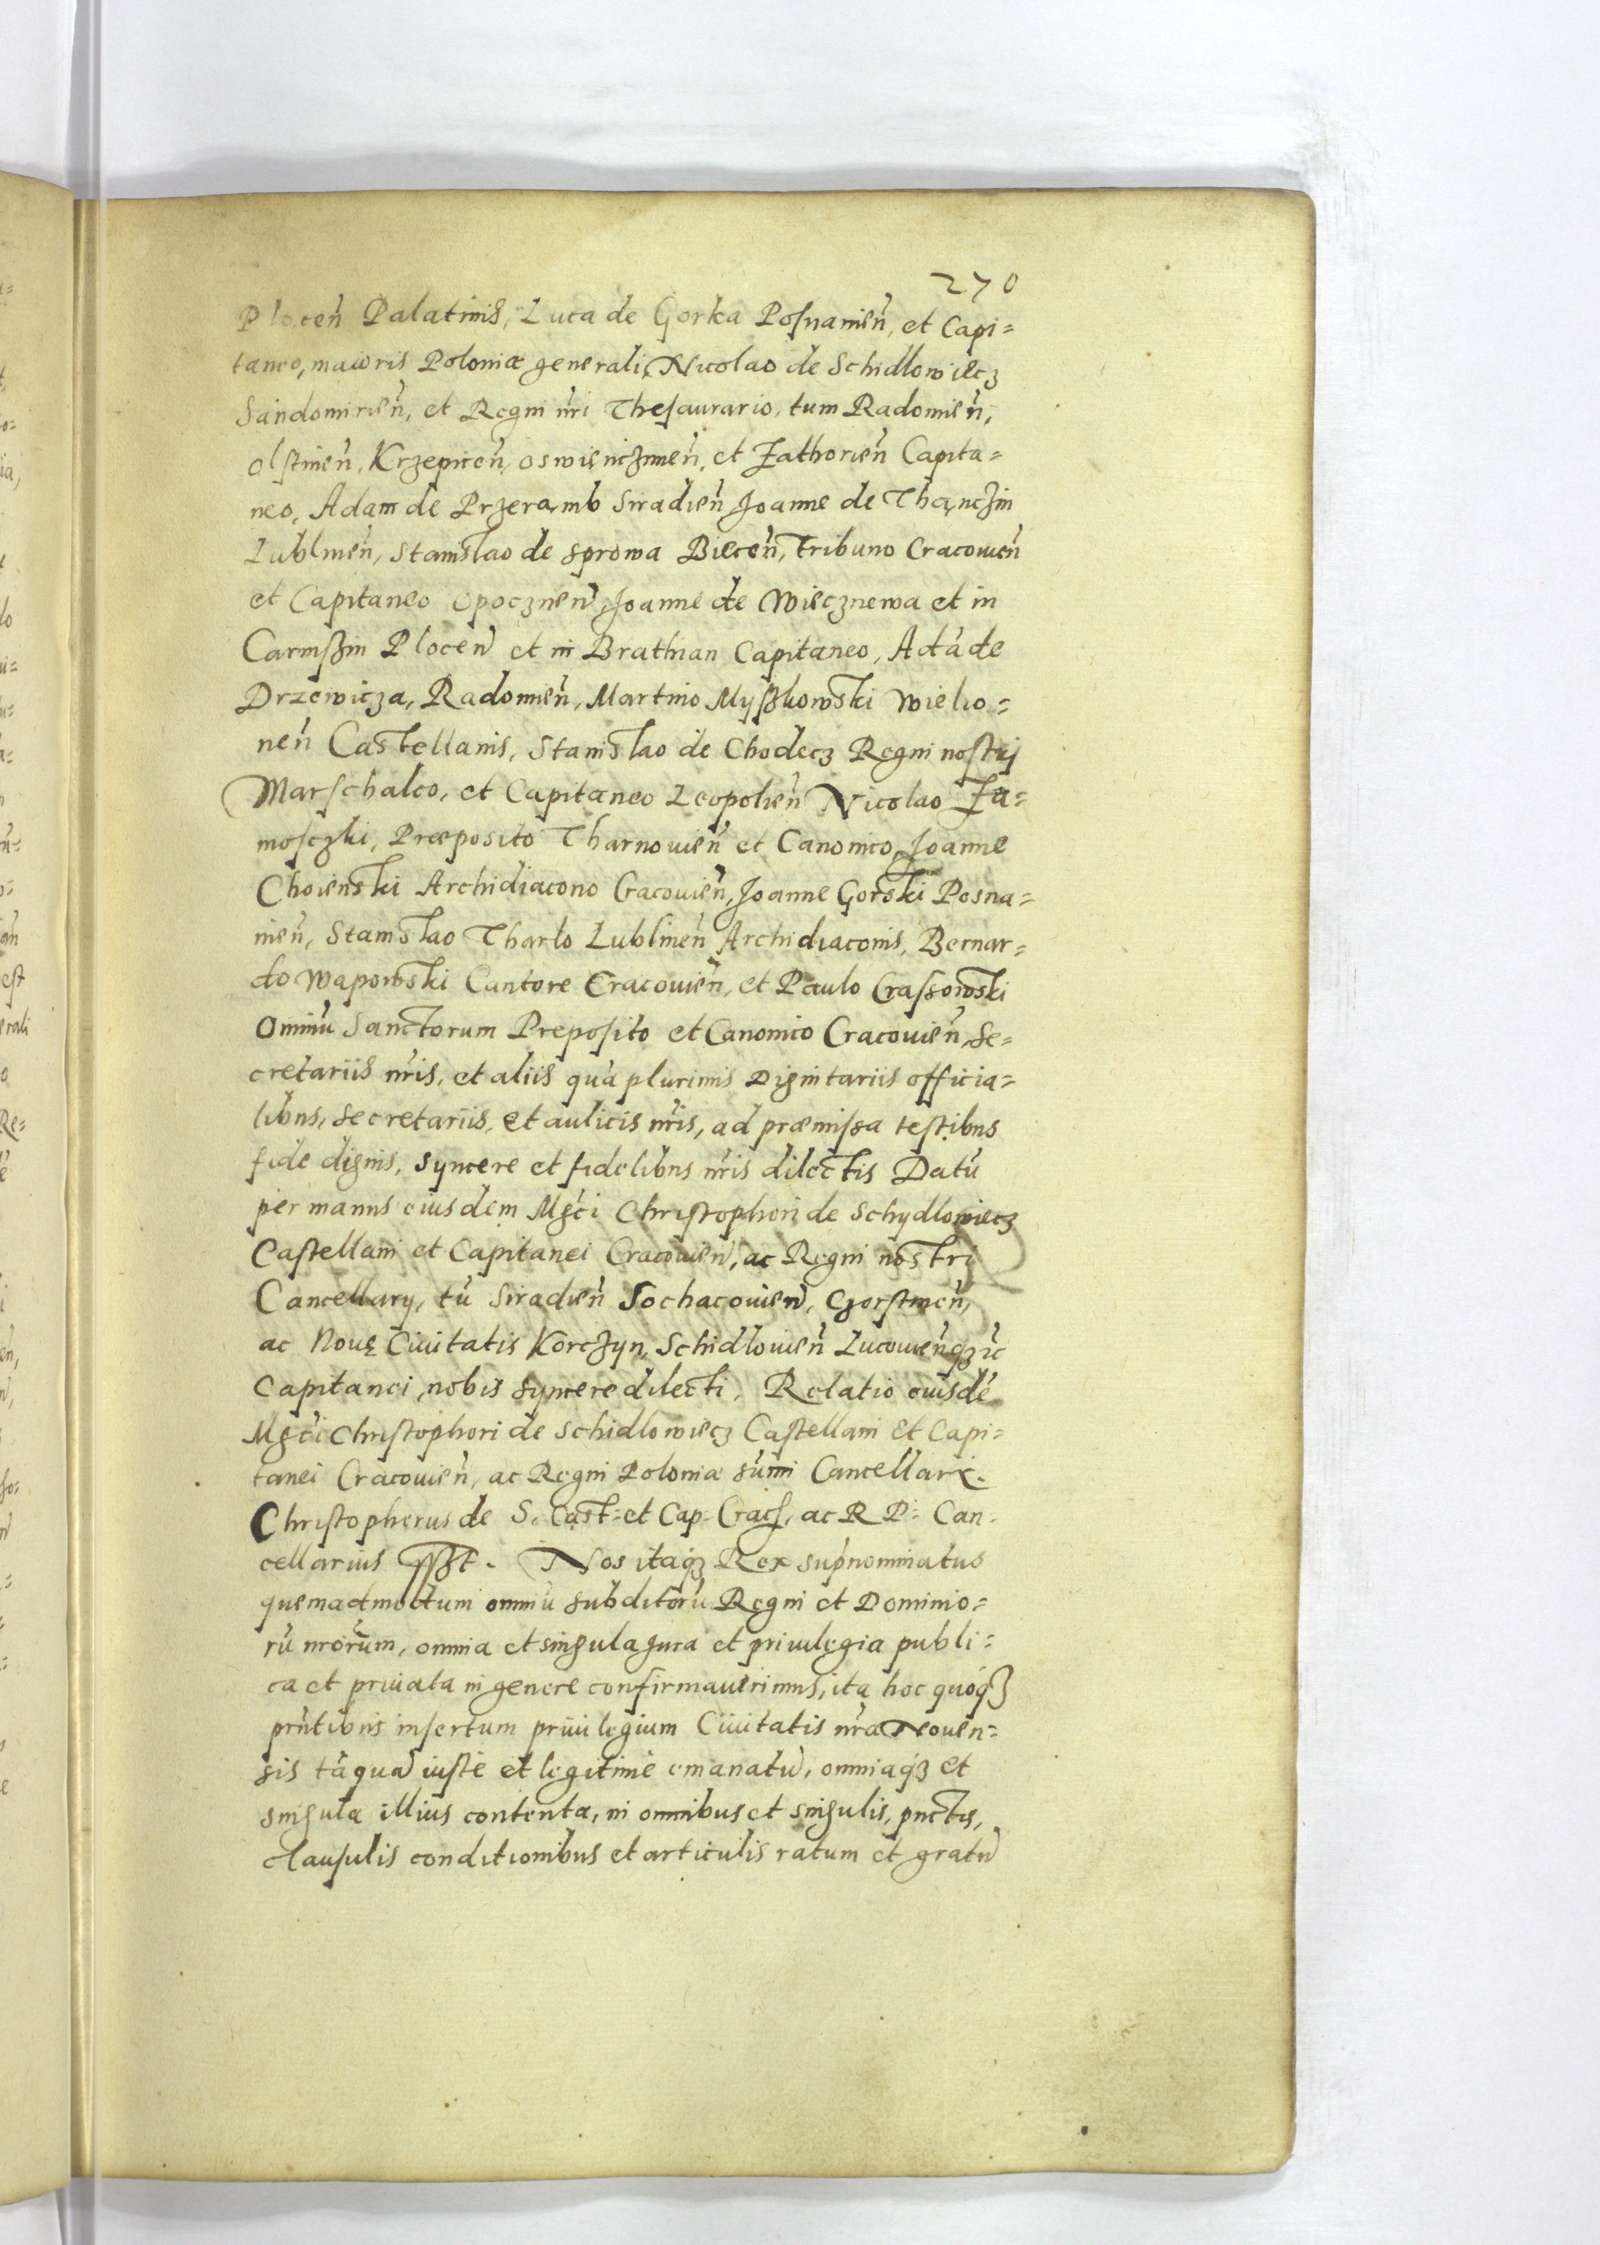 270
Plocen̄ Palatinis, Luca de Gorka Posnanien̄, et Capi=
taneo, maioris Poloniæ generali, Nicolao de Schidlowiecz
Sandomirien̄, et Regni nr̄i Thesaurario, tum Radomien̄,
olstinen̄, Krzepicen̄, oswięnczimen̄, et Zathorien̄ Capita=
neo, Adam de Przerąmb Siradien̄ Joanne de Thąnczin
Lublinen̄, Stanislao de sprowa Biecen̄, Tribuno Cracouien̄
et Capitaneo opocznen̄, Joanne de Wiecznewa et in
Carniszin Plocen̄ et in Brathian Capitaneo, Adā de
Drzewicza, Radomien̄, Martino Myszkowski wielio=
nen̄ Castellanis, Stanislao de Chodecz Regni nostrj
Marschalco, et Capitaneo Leopolien̄ Nicolao Za=
moſczki, Præposito Tharnouien̄ et Canonico, Joanne
Choienski Archidiacono Cracouien̄, Joanne Gorski Posna=
nien̄, Stanislao Tharlo Lublinen̄ Archidiaconis, Bernar=
do wapowski Cantore Cracouien̄, et Paulo Crassowski
Omniū Sanctorum Preposito et Canonico Cracouien̄, Se=
cretariis nr̄is, et aliis quā plurimis Dignitariis officia=
libus, secretariis, et aulicis nr̄is, ad præmissa testibus
fide dignis, syncere et fidelibus nr̄is dilectis Datū
per manus eiusdem Mgc̄i Christophori de Schydlowiecz
Castellani et Capitanei Cracouien̄, ac Regni nostri
Cancellarij, tū Siradien̄ Sochacouien̄, Gostinen̄,
ac Nouę Ciuitatis Korczyn, Schidlouien̄ Lucouien̄qz ꝛc̄
Capitanei, nobis syncere dilecti. Relatio eiusdē
Mgc̄i Christophori de Schidlowiecz Castellani et Capi=
tanei Cracouien̄, ac Regni Poloniæ sūmi Cancellarii.
Christopherus de S. Cast: et Cap: Crac: ac R P: Can-
cellarius sszt. Nos itaqz Rex supnominatus
quemadmodum omniū subditorū Regni et Dominio=
rū nr̄orum, omnia et singula jura et priuilegia publi=
ca et priuata in genere confirmauerimus, ita hoc quoqz
prn̄tibus insertum priuilegium Ciuitatis nr̄æ Nouen=
sis tāquā iustè et legitimè emanatū, omniaqz et
singula illius contenta, in omnibus et singulis, punctis,
clausulis conditionibus et articulis ratum et gratū